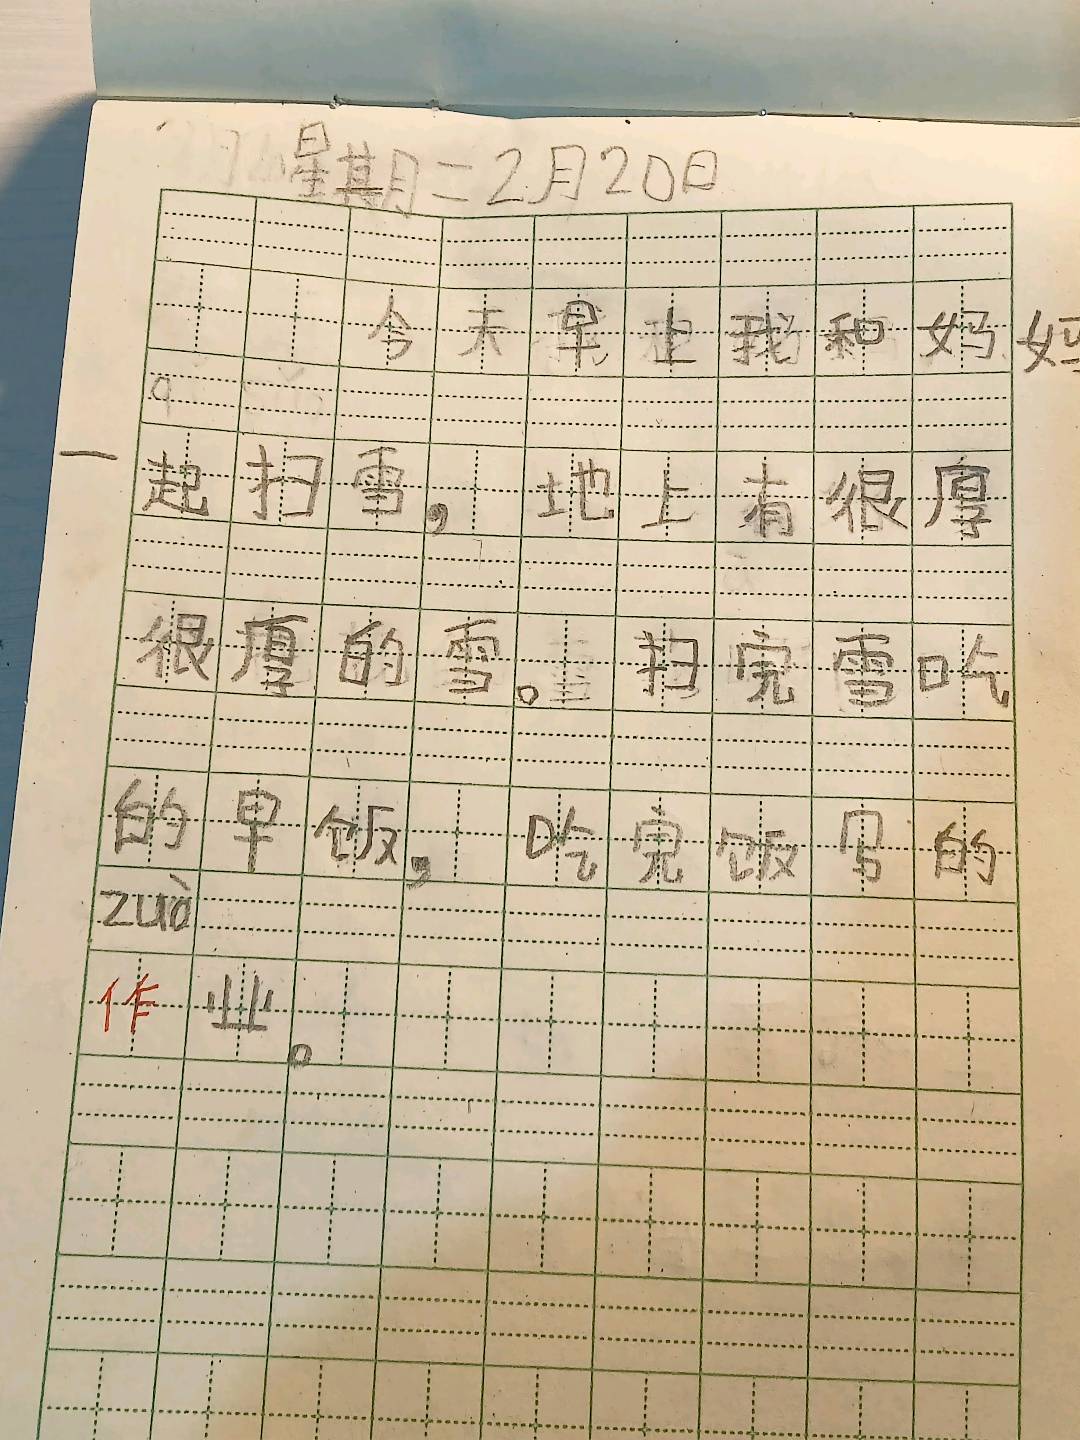 星期二2月20日
今天早上我和妈妈
一起扫雪，地上有很厚
很厚的雪。扫完雪吃
的早饭，吃完饭写的
zuò
作业。